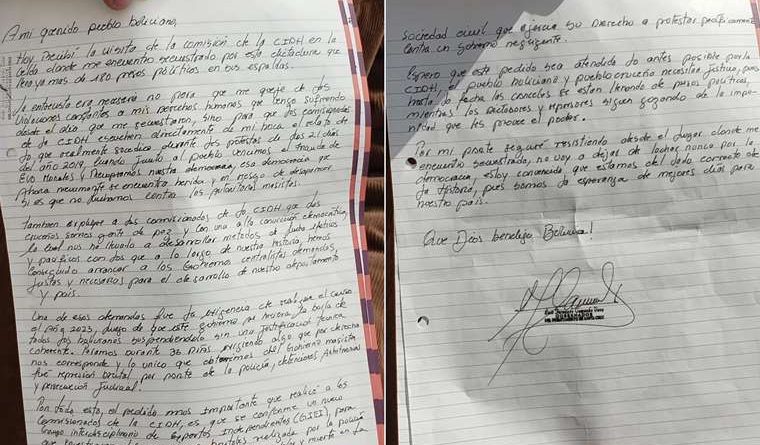 A mi querido pueblo boliviano,
Hoy Recibí la visita de la comisión de la CIDH en la
celda donde me encuentro secuestrado por esta dictadura que
lleva ya más de 180 presos políticos en sus espaldas.
La entrevista era necesaria no para que me queje de las
violaciones constantes a mis derechos humanos que vengo sufriendo
desde el día que me secuestraron, sino para que los comisionados
de la CIDH escuchen directamente de mi boca el relato de
lo que realmente sucedió durante las protestas de los 21 días
del año 2019, cuando junto al pueblo vencimos el fraude de
Evo Morales y Recuperamos nuestra democracia, esa democracia que
Ahora nuevamente se encuentra herida y en riesgo de desaparecer
si es que no luchamos contra los autoritarios masistas.
También expliqué a los comisionados de la CIDH que los
cruceños somos gente de paz y con una alta convicción democrática,
la cual nos ha llevado a desarrollar métodos de lucha efectivos
y pacíficos con los que a lo largo de nuestra historia, hemos
conseguido arrancar a los Gobiernos centralistas demandas
justas y necesarias para el desarrollo de nuestro departamento
y país.
Una de esas demandas fue la exigencia de realizar el censo
el año 2023, luego de que este gobierno por
todos los bolivianos suspendiéndolo sin una justificación técnica
coherente. Paramos durante 36 Días exigiendo algo que por derecho
nos corresponde y lo único que obtuvimos del Gobierno masista
fue represión brutal por parte de la policía, detenciones Arbitrarias
y persecución Judicial.
Por todo esto, el pedido mas importante que realicé a los
Comisionados de la CIDH, es que se conforme un nuevo
Grupo interdisciplinario de Expertos Independientes (GIEI), para
que realizada por la policía
y muerte en la
sociedad civil que ejercía su Derecho a protestar pacíficamente
contra un Gobierno negligente.
Espero que este pedido sea atendido lo antes posible por la
CIDH, el pueblo boliviano y pueblo cruceño necesitan justicia, pues
hasta la fecha las cárceles se están llenando de presos políticos,
mientras los dictadores y represores siguen gozando de la impu-
nidad que les provee el poder.
Por mi parte seguiré resistiendo desde el lugar donde me
encuentro secuestrado, no voy a dejar de luchar nunca por la
democracia, estoy convencido que estamos del lado correcto de
la historia, pues somos la esperanza de mejores días para
nuestro país.
Que Dios bendiga Bolivia!